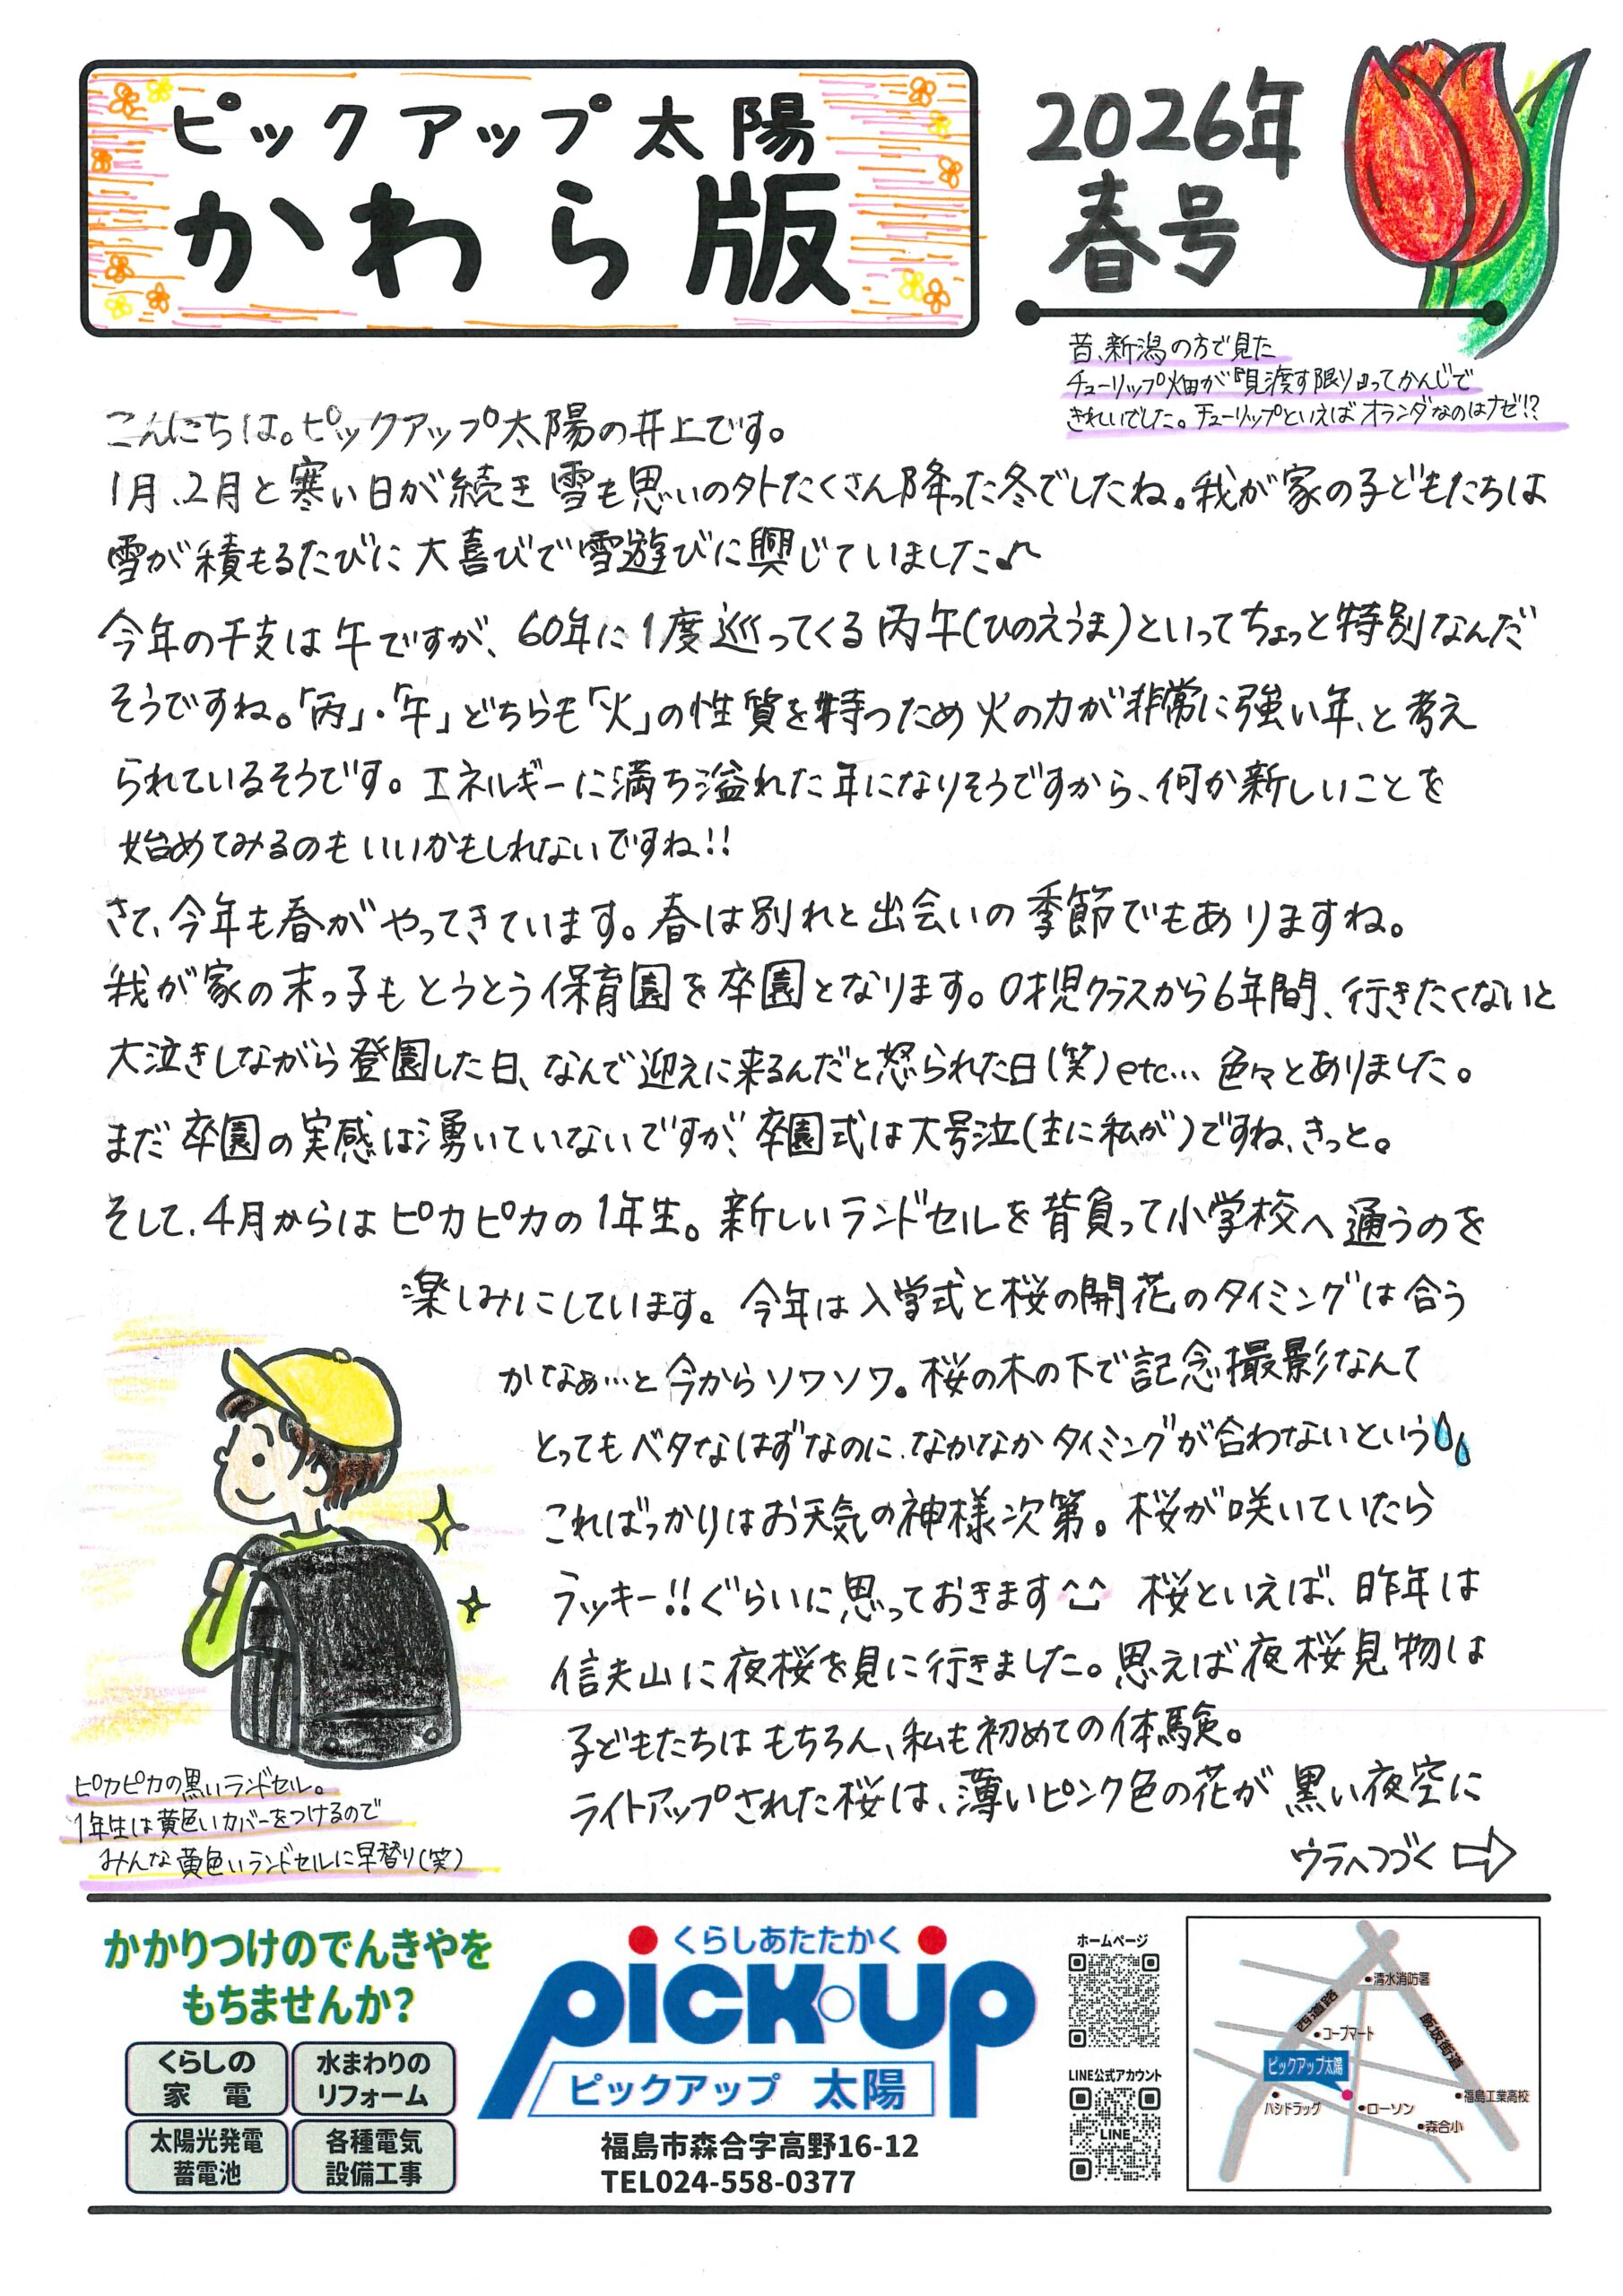 ピックアップ太陽
かわら版
2026年
春号
昔、新潟の方で見た
チューリップ畑が『見渡す限り』ってかんじで
きれいでした。チューリップといえばオランダなのはナゼ!?
こんにちは。ピックアップ太陽の井上です。
1月、2月と寒い日が続き雪も思いの外たくさん降った冬でしたね。我が家の子どもたちは
雪が積もるたびに大喜びで雪遊びに興じていました♪
今年の干支は午ですが、60年に1度巡ってくる丙午(ひのえうま)といってちょっと特別なんだ
そうですね。「丙」・「午」どちらも「火」の性質を持つため火の力が非常に強い年、と考え
られているそうです。エネルギーに満ち溢れた年になりそうですから、何か新しいことを
始めてみるのもいいかもしれないですね!!
さて、今年も春がやってきています。春は別れと出会いの季節でもありますね。
我が家の末っ子もとうとう保育園を卒園となります。0才児クラスから6年間、行きたくないと
大泣きしながら登園した日、なんで迎えに来るんだと怒られた日(笑)etc… 色々とありました。
まだ卒園の実感は湧いていないですが、卒園式は大号泣(主に私が)ですね、きっと。
そして、4月からはピカピカの1年生。新しいランドセルを背負って小学校へ通うのを
楽しみにしています。今年は入学式と桜の開花のタイミングは合う
かなぁ…と今からソワソワ。桜の木の下で記念撮影なんて
とってもベタなはずなのに、なかなかタイミングが合わないという
こればっかりはお天気の神様次第。桜が咲いていたら
ラッキー!!ぐらいに思っておきます^^ 桜といえば、昨年は
信夫山に夜桜を見に行きました。思えば夜桜見物は
子どもたちはもちろん、私も初めての体験。
ライトアップされた桜は、薄いピンク色の花が黒い夜空に
ウラへつづく⇨
ピカピカの黒いランドセル。
1年生は黄色いカバーをつけるので
みんな黄色いランドセルに早替り(笑)
かかりつけのでんきやを
もちませんか?
くらしの
家電
水まわりの
リフォーム
太陽光発電
蓄電池
各種電気
設備工事
くらしあたたかく
pick・up
ピックアップ 太陽
福島市森合字高野16-12
TEL024-558-0377
ホームページ
LINE公式アカウント
LINE
清水消防署
西道路
コープマート
飯坂街道
ピックアップ太陽
ハシドラッグ
ローソン
福島工業高校
森合小